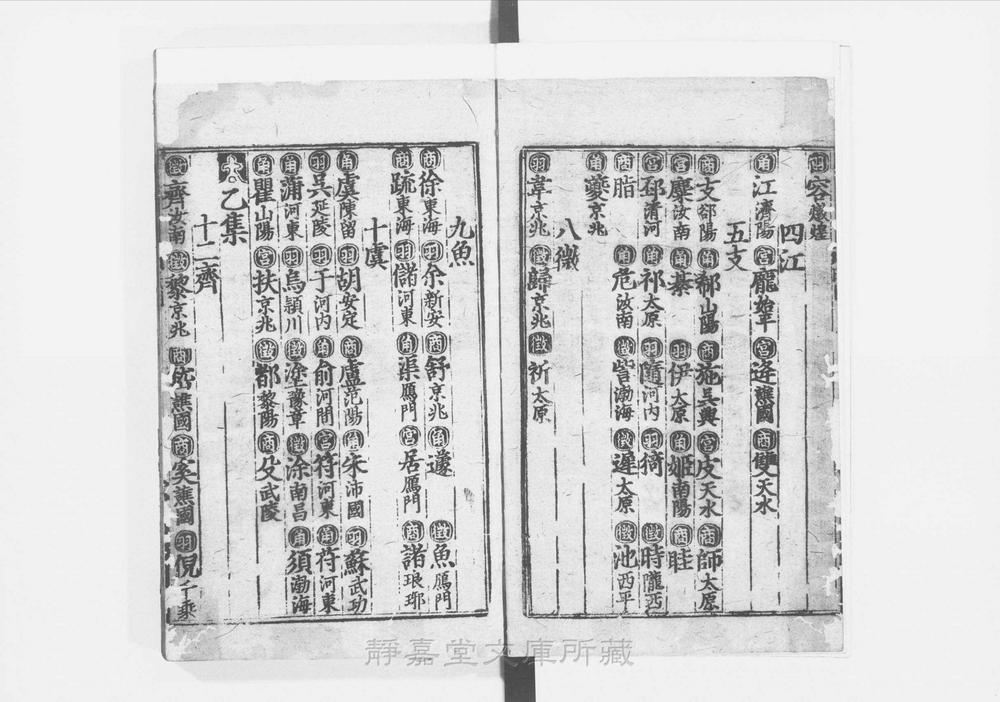 四江
商江濟陽宮龐始平宮逄譙國商雙天水
五支
商支郃陽角郗山陽商施吳興宮皮天水商師太原
宮麋汝南角綦羽伊太原角姬南陽商眭
宮邳清河角祁太原羽隨河內羽猗徵時隴西
商脂角危汝南徵訾渤海徵遲太原徵池西平
角夔京兆
八微
羽韋京兆徵歸京兆徵祈太原
九魚
商徐東海羽余新安商舒京兆角蘧徵魚鴈門
商疏東海羽儲河東角渠鴈門宮居鴈門商諸琅琊
十虞
角虞陳留羽胡安定商盧范陽角朱沛國羽蘇武功
羽吳延陵羽于河內角俞河間宮符河東角苻河東
角蒲河東羽烏潁川徵塗豫章徵涂南昌角須渤海
角瞿山陽宮扶京兆徵都黎陽商殳武陵
乙集
十二齊
徵齊汝南徵黎京兆商嵇譙國商奚譙國羽倪千乘
靜嘉堂文庫所藏